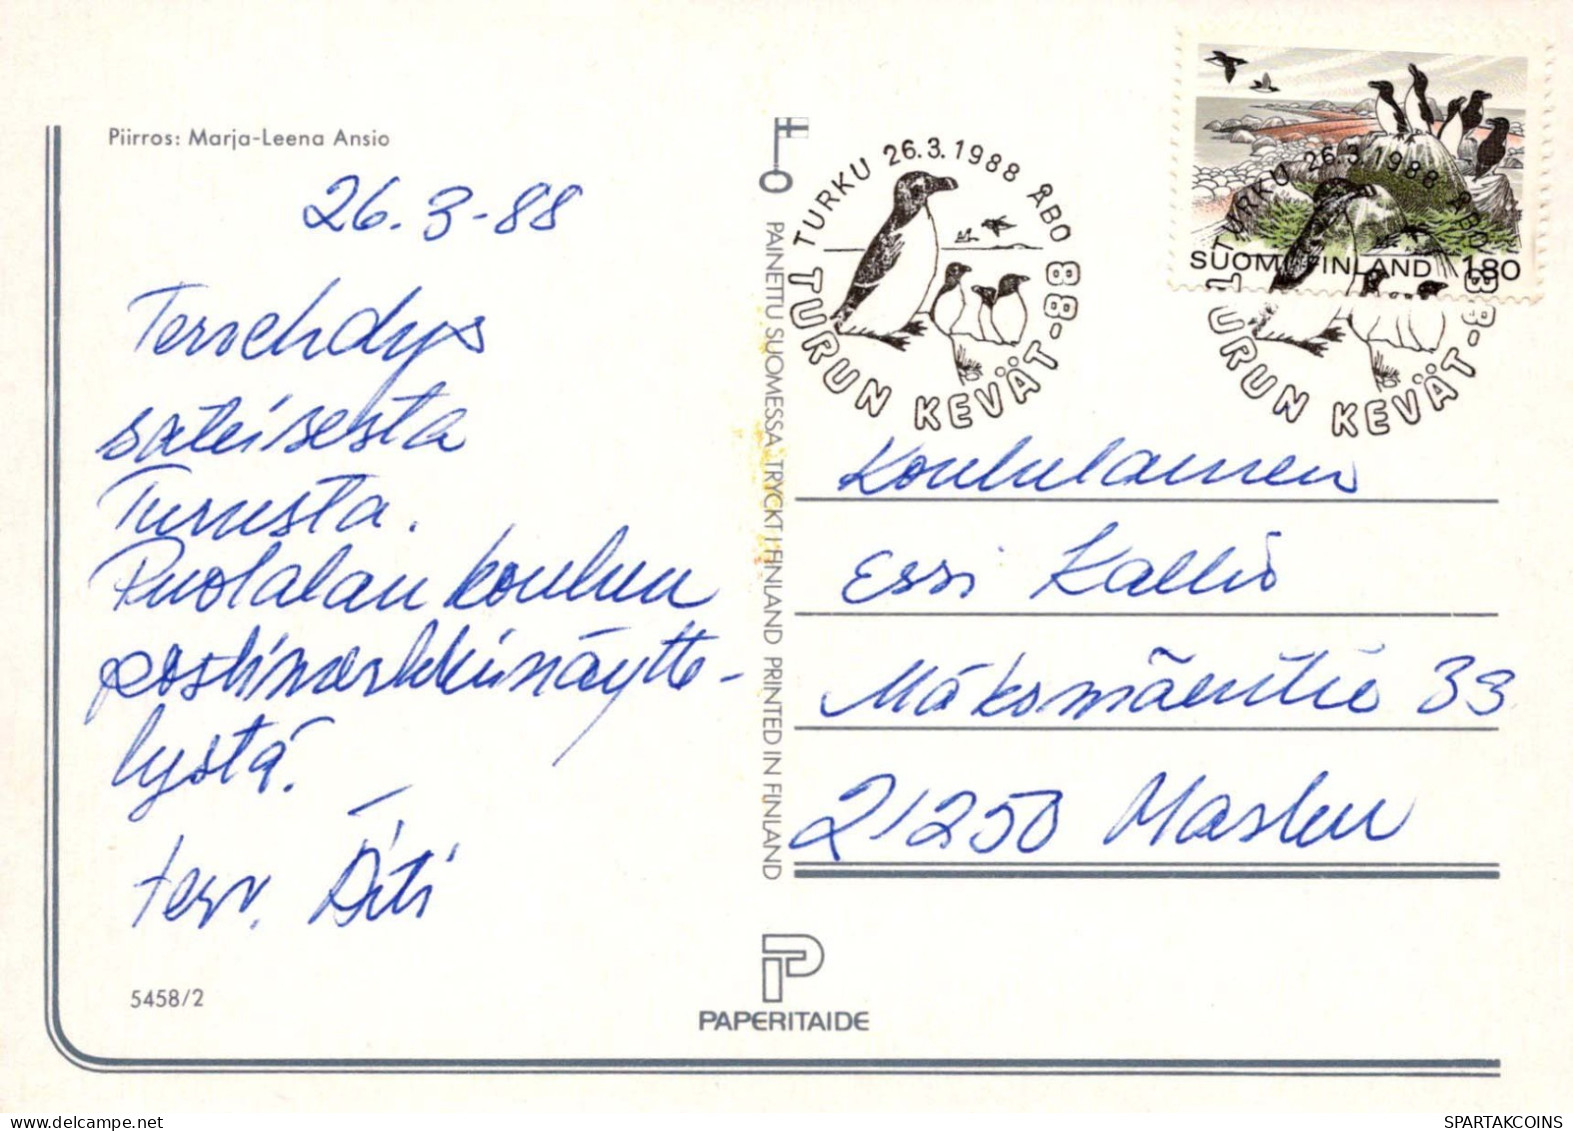 Piirros: Marja-Leena Ansio
26.3-88
Tervehdys
sateisesta
Turusta.
Puolalan koulun
postimerkkinäytte-
lystä.
terv. Äiti
5458/2
PAINETTU SUOMESSA TRYCKT I FINLAND PRINTED IN FINLAND
PAPERITAIDE
TURKU 26.3.1988 ÅBO
TURUN KEVÄT-88
SUOMI FINLAND 1,80
TURKU 26.3.1988 ÅBO
TURUN KEVÄT-88
Koululainen
Essi Kallio
Mäksmäentie 33
21250 Masku
SPARTAKCOINS
delcampe.net